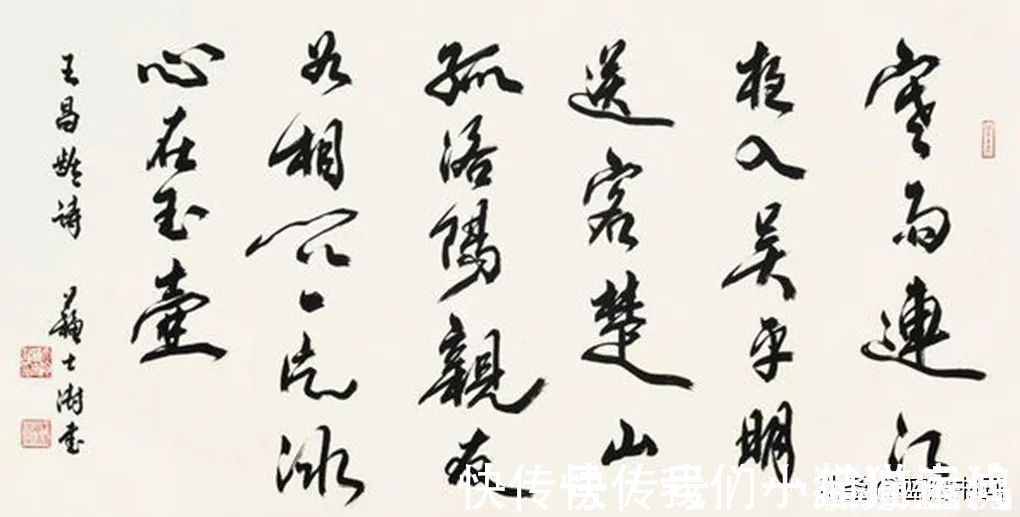 寒雨連江
夜入吴平明
送客楚山
孤洛陽親友
如相問一片冰
心在玉壺
王昌齡詩 蘇士澍書